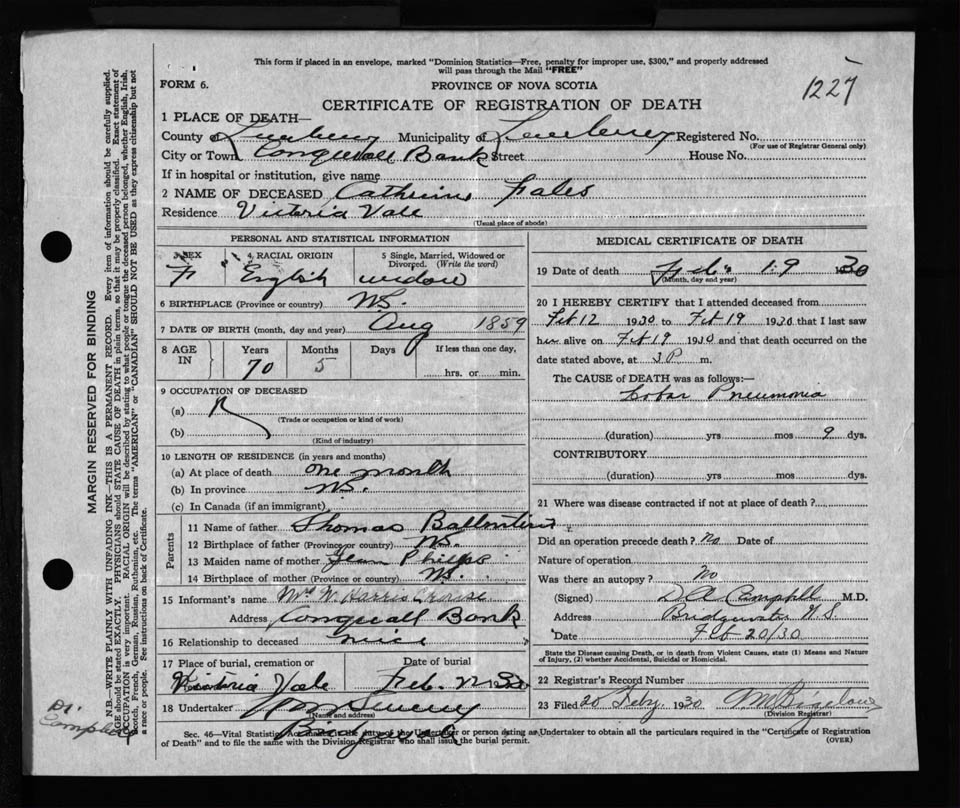 This form if placed in an envelope, marked "Dominion Statistics—Free, penalty for improper use, $300," and properly addressed
will pass through the Mail "FREE"
1227
FORM 6.
PROVINCE OF NOVA SCOTIA
CERTIFICATE OF REGISTRATION OF DEATH
1 PLACE OF DEATH—
County of Lunenburg Municipality of Lunenburg Registered No.
(For use of Registrar General only)
City or Town Conquerall Bank Street House No.
If in hospital or institution, give name
2 NAME OF DECEASED Catherine Fales
Residence Victoria Vale
(Usual place of abode)
PERSONAL AND STATISTICAL INFORMATION
3 SEX 4 RACIAL ORIGIN 5 Single, Married, Widowed or Divorced. (Write the word)
F English widow
6 BIRTHPLACE (Province or country) N.S.
7 DATE OF BIRTH (month, day and year) Aug 1859
8 AGE IN Years Months Days If less than one day,
70 5 hrs. or min.
9 OCCUPATION OF DECEASED
(a)
(Trade or occupation or kind of work)
(b)
(Kind of industry)
10 LENGTH OF RESIDENCE (in years and months)
(a) At place of death one month
(b) In province N.S.
(c) In Canada (if an immigrant)
Parents
11 Name of father Thomas
12 Birthplace of father (Province or country) N.S.
13 Maiden name of mother Jean Phelps
14 Birthplace of mother (Province or country) N.S.
15 Informant's name Mrs W. Harris
Address Conquerall Bank
16 Relationship to deceased niece
17 Place of burial, cremation or Date of burial
Victoria Vale Feb.
18 Undertaker
(Name and address)
MEDICAL CERTIFICATE OF DEATH
19 Date of death Feb. 19 1930
(Month, day and year)
20 I HEREBY CERTIFY that I attended deceased from
Feb 12 1930 to Feb 19 1930 that I last saw
her alive on Feb 19 1930 and that death occurred on the
date stated above, at 3 P m.
The CAUSE of DEATH was as follows:—
Lobar Pneumonia
(duration) yrs mos 9 dys.
CONTRIBUTORY
(duration) yrs mos dys.
21 Where was disease contracted if not at place of death?
Did an operation precede death? No Date of
Nature of operation
Was there an autopsy? No
(Signed) D A Campbell M.D.
Address Bridgewater N.S.
Date Feb 20/30
State the Disease causing Death, or in death from Violent Causes, state (1) Means and Nature
of Injury, (2) whether Accidental, Suicidal or Homicidal.
22 Registrar's Record Number
23 Filed 20 Feby. 1930
(Division Registrar)
Sec. 46—Vital Statistics the duty of the Undertaker or person acting as Undertaker to obtain all the particulars required in the "Certificate of Registration
of Death" and to file the same with the Division Registrar who shall issue the burial permit. (OVER)
MARGIN RESERVED FOR BINDING
N.B.—WRITE PLAINLY WITH UNFADING INK—THIS IS A PERMANENT RECORD. Every item of information should be carefully supplied.
AGE should be stated EXACTLY. PHYSICIANS should STATE CAUSE OF DEATH in plain terms, so that it may be properly classified. Exact statement of
OCCUPATION is very important. RACIAL ORIGIN will be described by stating to what people or tongue the deceased person belonged, whether English, Irish,
Scotch, French, German, Russian, Ruthenian, etc. The terms "AMERICAN" or "CANADIAN" SHOULD NOT BE USED as they express citizenship but not
a race or people. See instructions on back of Certificate.
Dr.
Campbell